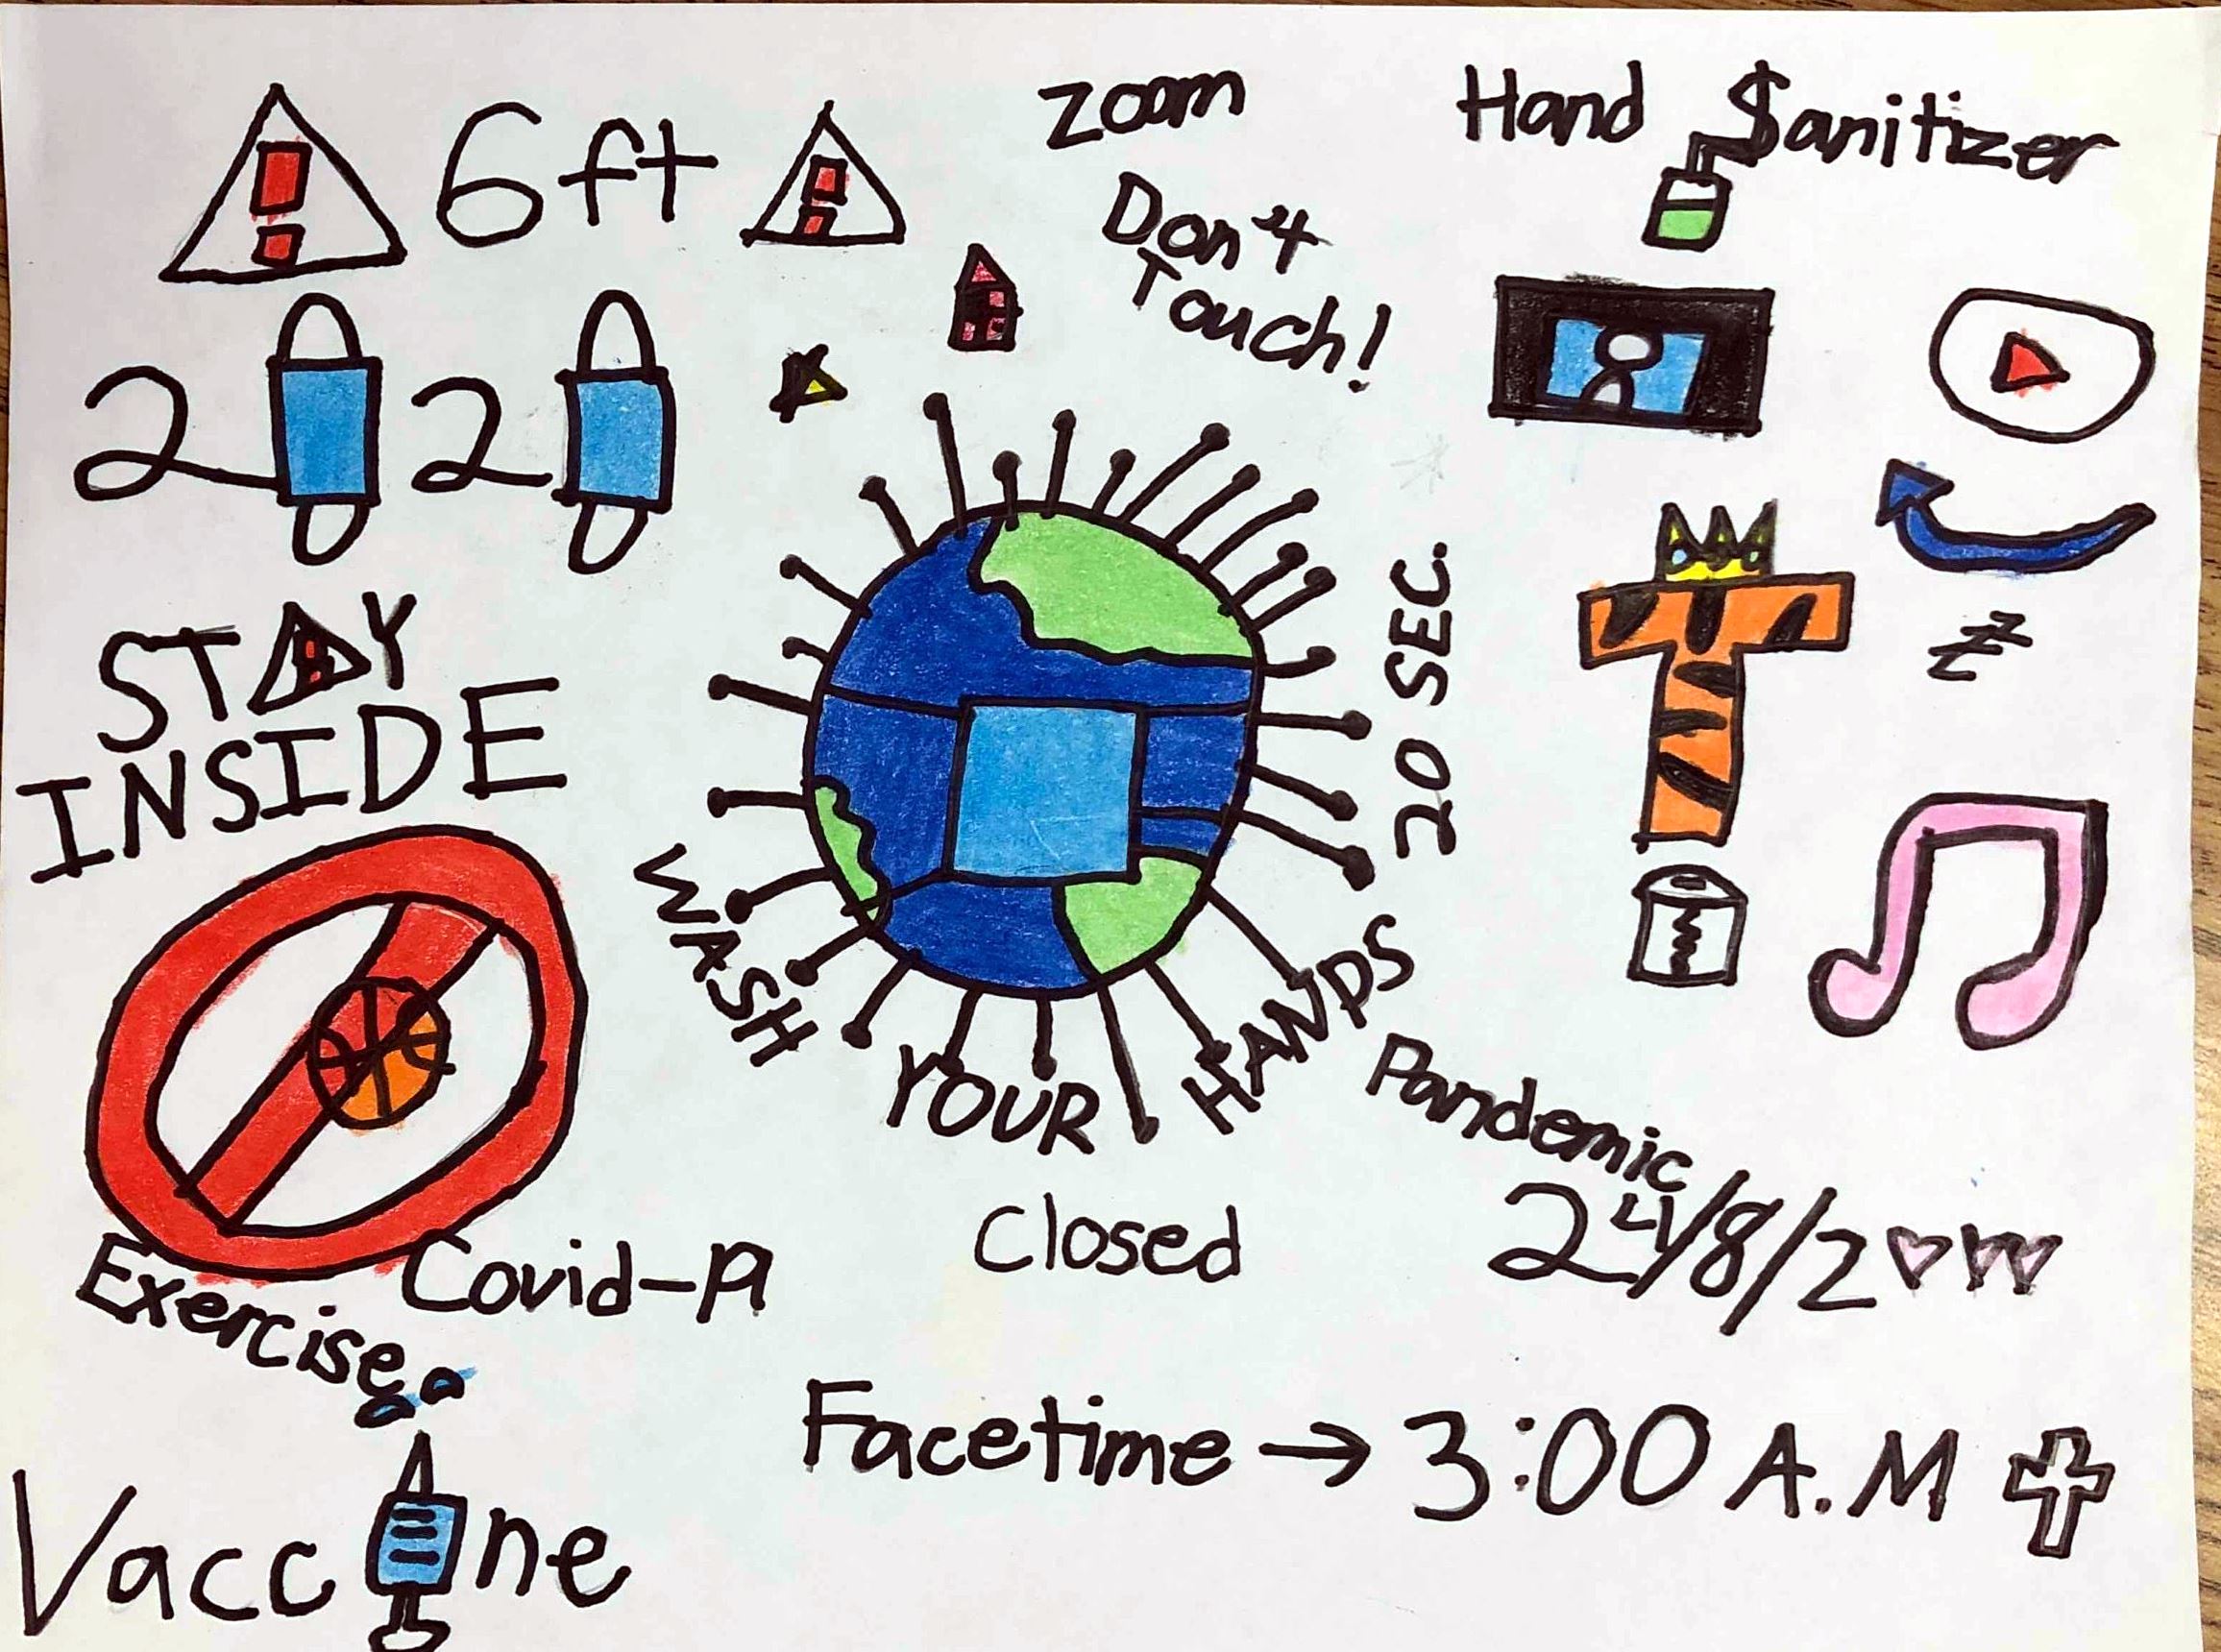 6ft
zoom
Hand $anitizer
Don't
Touch!
2 2
STAY
INSIDE
20 SEC.
z
WASH
YOUR
HANDS
Pandemic
24/8/2
Closed
Covid-19
Exercise
Facetime → 3:00 A.M
Vaccine